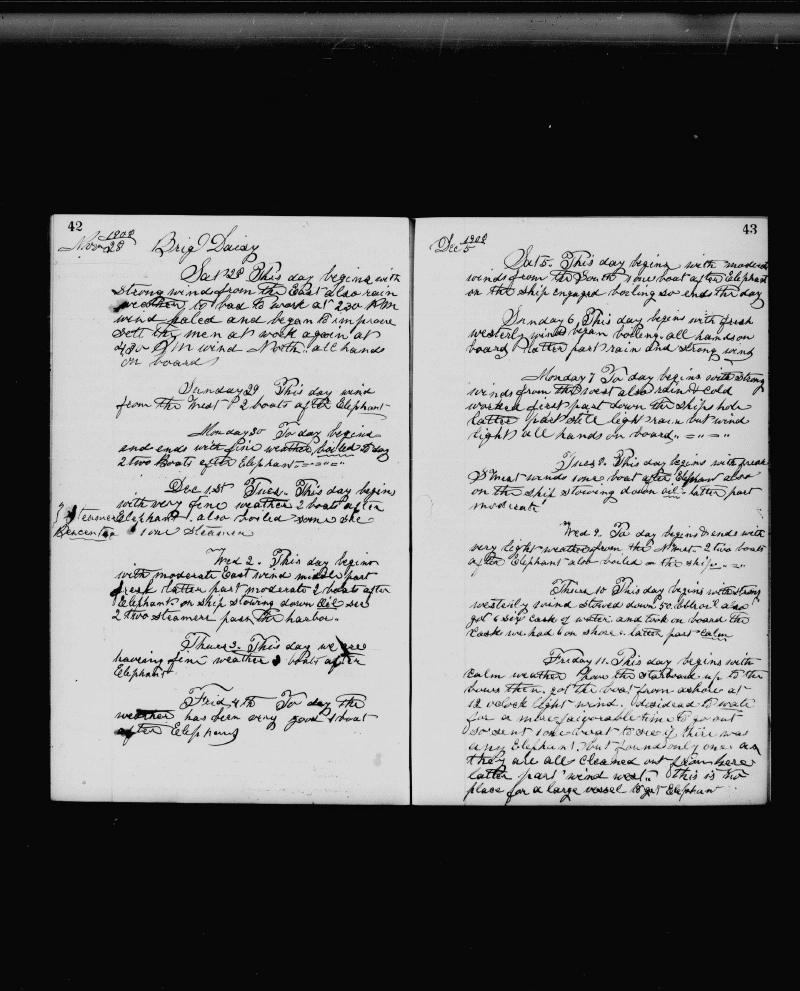 42
1908
Nov 28
Brig Daisy
Sat 28 This day begins with
strong wind from the East also rain
weather to bad to work at 230 P.M
wind haled and began to improve
sett the men at work again at
430 P.M wind North all hands
on board
Sunday 29 This day wind
from the West 2 boats after Elephant
Monday 30 To day begins
and ends with fine weather boiled to day
2 two Boats after Elephant
Dec 1st Tues. This day begins
with very fine weather 2 boats after
Elephant also boiled some
1 one Steamer
Steamer
Wed 2. This day begins
with moderate East wind middle part
fresh latter part moderate 2 boats after
Elephant on ship stowing down Oil see
2 two steamers pass the harbor
Thurs 3. This day we are
having fine weather 3 boats after
Elephant
Frid 4th To day the
weather has been very good 1 boat
after Elephant
43
1908
Dec 5
Sat 5. This day begins with moderate
winds from the South 1 one boat after Elephant
on the ship engaged boiling so ends the day
Sunday 6 This day begins with fresh
westerly winds began boiling. all hands on
board latter part rain and strong wind
Monday 7 To day begins with strong
winds from the west also rain & cold
worked first part down the ships hole
latter part still light rain but wind
light all hands on board
Tues 8. This day begins with fresh
winds one boat after Elephant also
on the ship stowing down oil latter part
moderate
Wed 9. To day begins & ends with
very light weather from the N West 2 two boats
after Elephant also boiled on the ship
Thurs 10 This day begins with strong
westerly wind stowed down 50 bbls oil also
got 6 six cask of water and took on board the
cask we had 6 on shore latter part calm
Friday 11. This day begins with
calm weather have the starboard up to the
bows then got the boat from ashore at
12 oclock light wind. desided to wate
for a more faiverable time to go out
so sent 1 one boat to see if there was
any Elephant. but found only one as
they are all cleaned out from here
latter part wind west. This is no
place for a large vessel to get Elephant